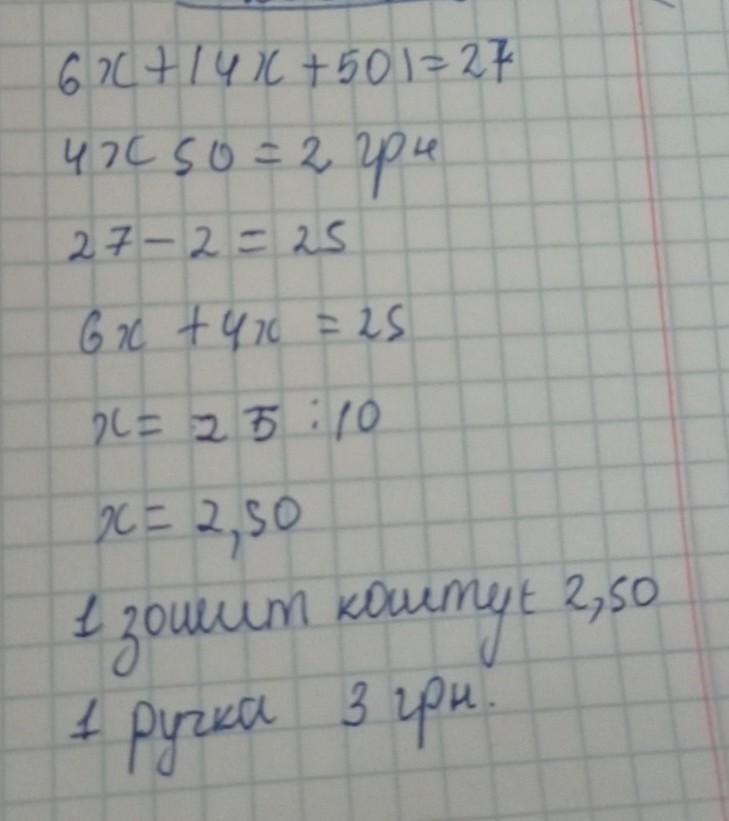 6x+(4x+50)=27
4x50=2 грн
27-2=25
6x+4x=25
x=25:10
x=2,50
1 зошит коштує 2,50
1 ручка 3 грн.